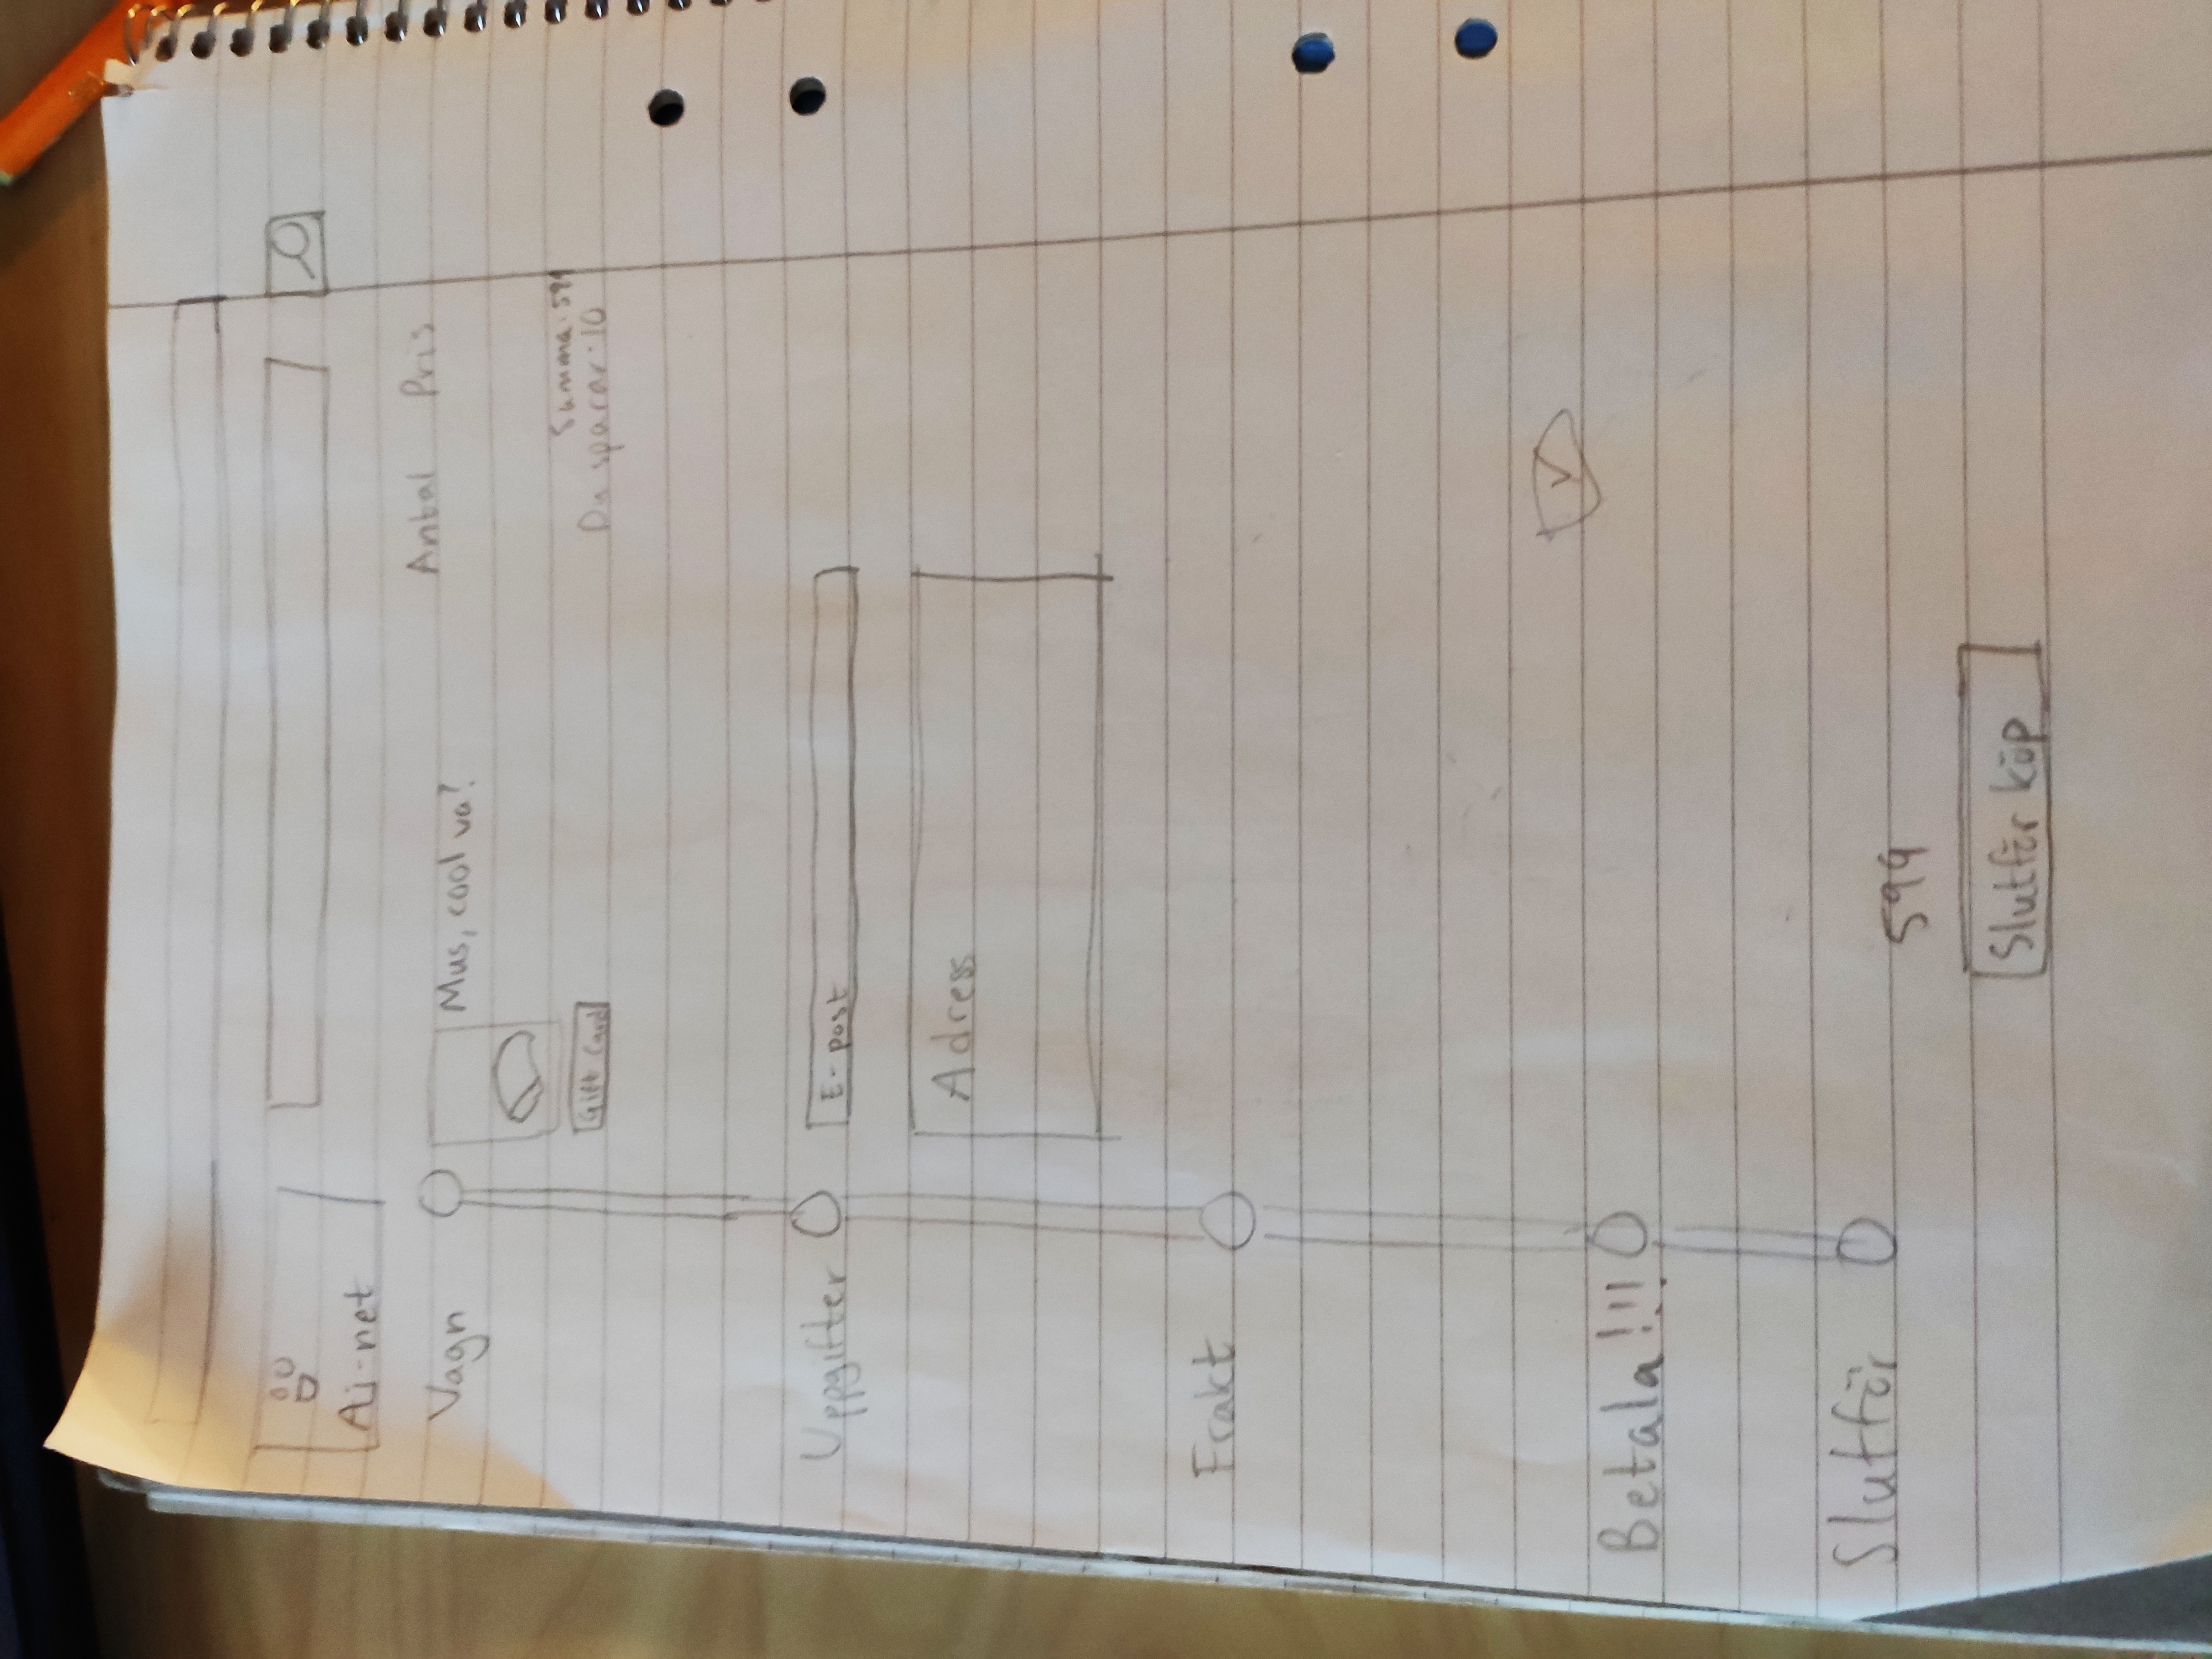 Ai-net
Vagn
Mus, cool va?
Antal Pris
Gift Card
Summa: 599
Du sparar: 10
Uppgifter
E-post
Adress
Frakt
Betala!!!
Slutför
599
Slutför köp